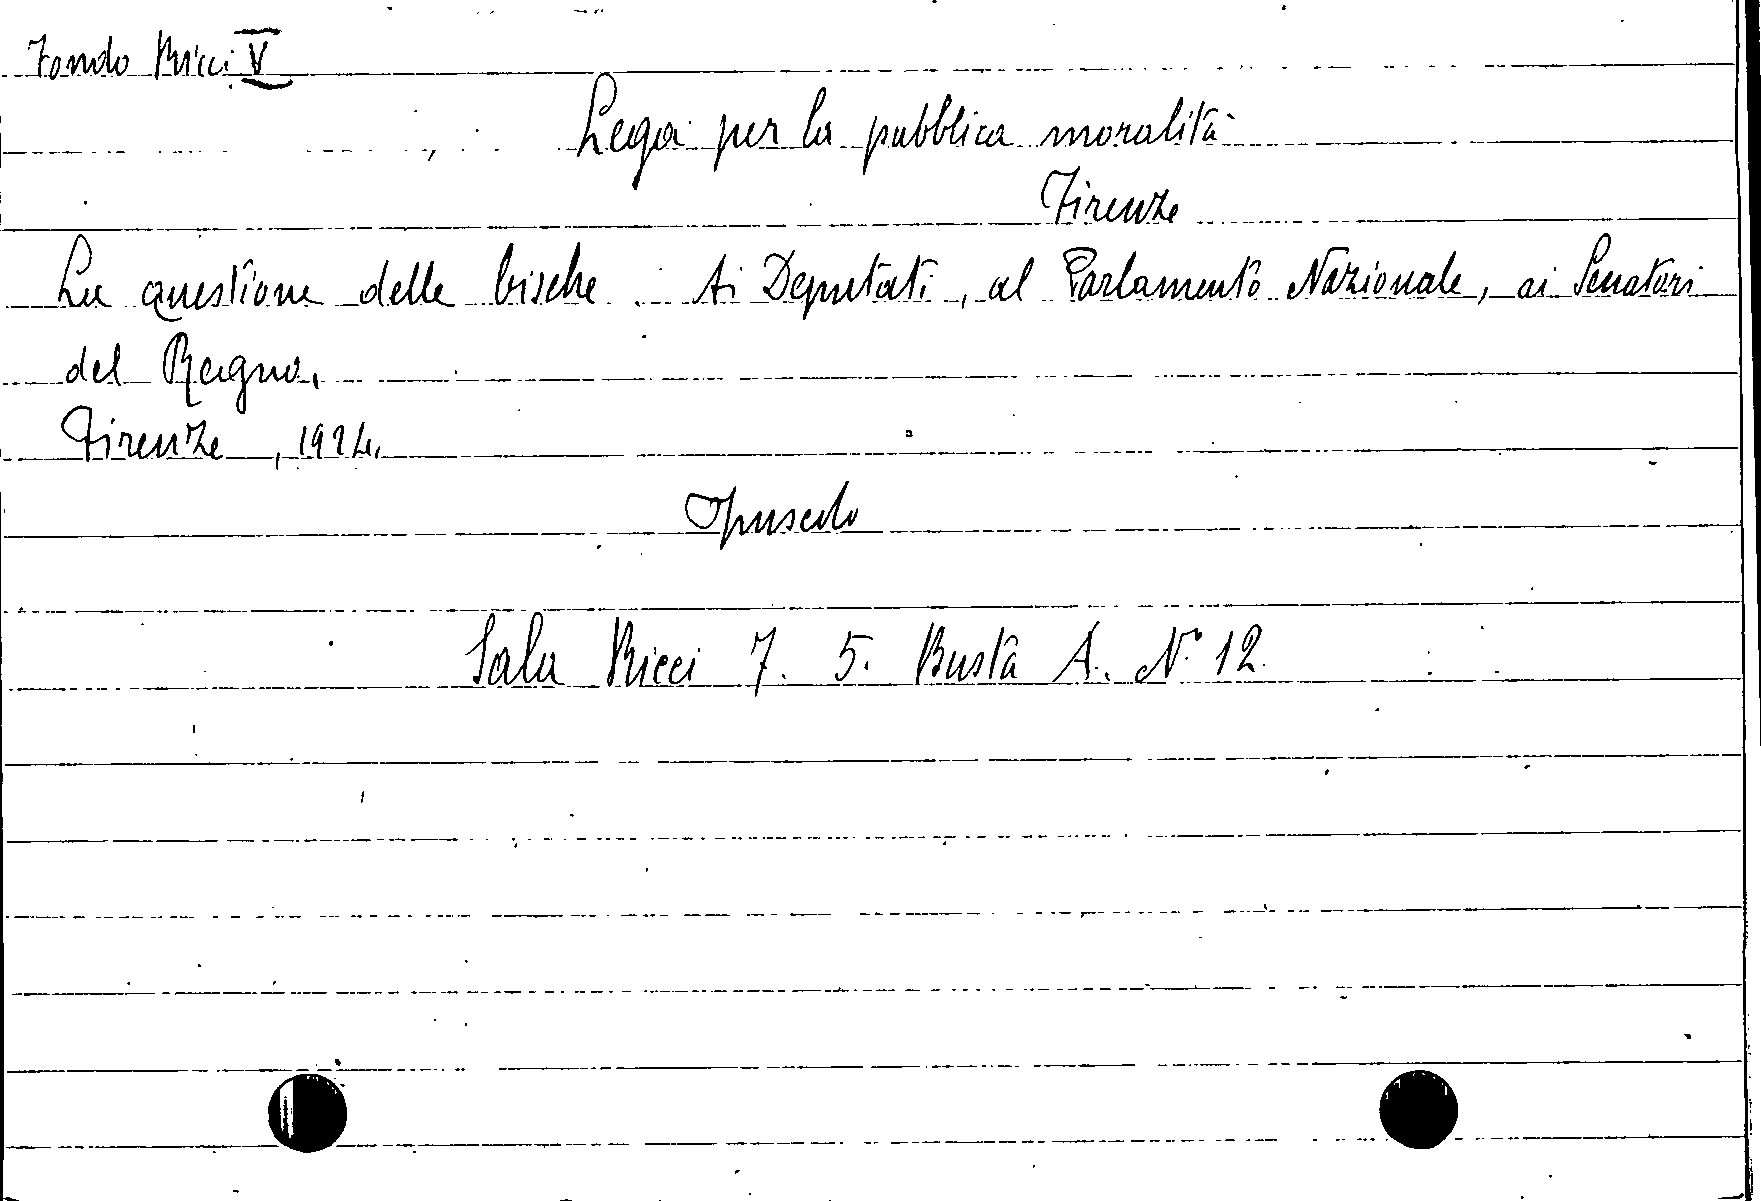 Fondo Ricci V
Lega per la pubblica moralità
Firenze
La questione delle bische. Ai Deputati, al Parlamento Nazionale, ai Senatori
del Regno.
Firenze, 1924.
Opuscolo
Sala Ricci 7. 5. Busta A. N° 12.